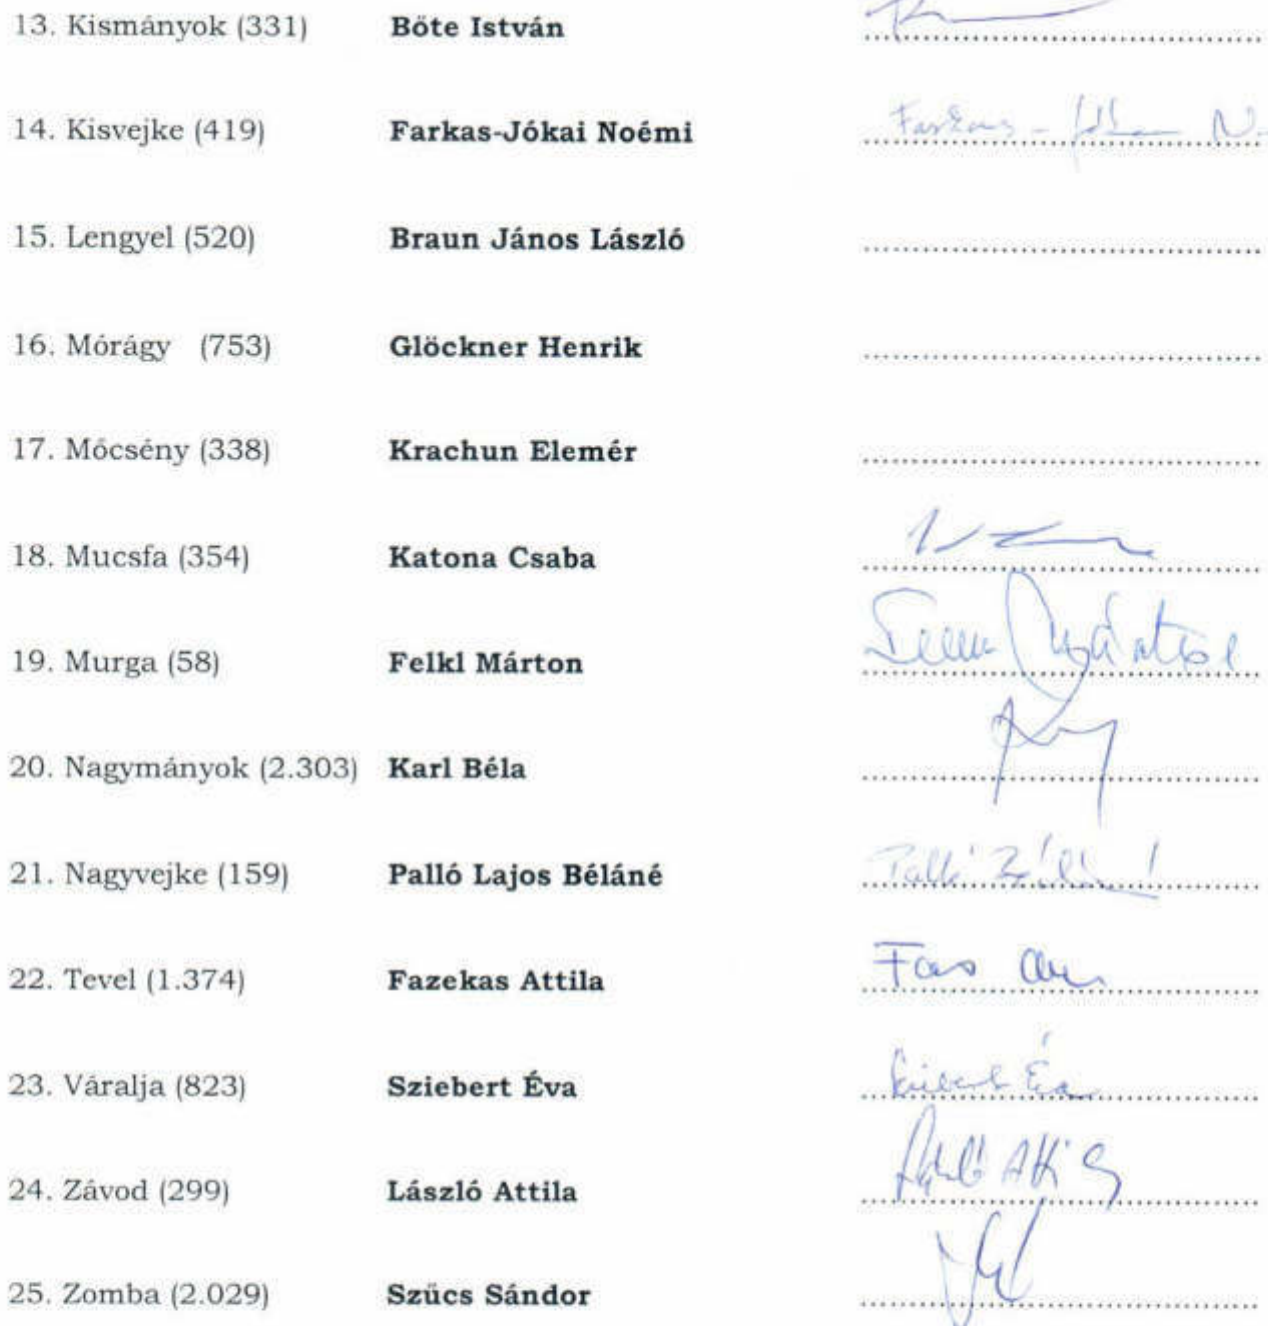 13. Kismányok (331) Bőte István
14. Kisvejke (419) Farkas-Jókai Noémi Farkas-
15. Lengyel (520) Braun János László
16. Mórágy (753) Glöckner Henrik
17. Mőcsény (338) Krachun Elemér
18. Mucsfa (354) Katona Csaba
19. Murga (58) Felkl Márton
20. Nagymányok (2.303) Karl Béla
21. Nagyvejke (159) Palló Lajos Béláné Palló Béláné
22. Tevel (1.374) Fazekas Attila
23. Váralja (823) Sziebert Éva Sziebert Éva
24. Závod (299) László Attila László Attila
25. Zomba (2.029) Szücs Sándor